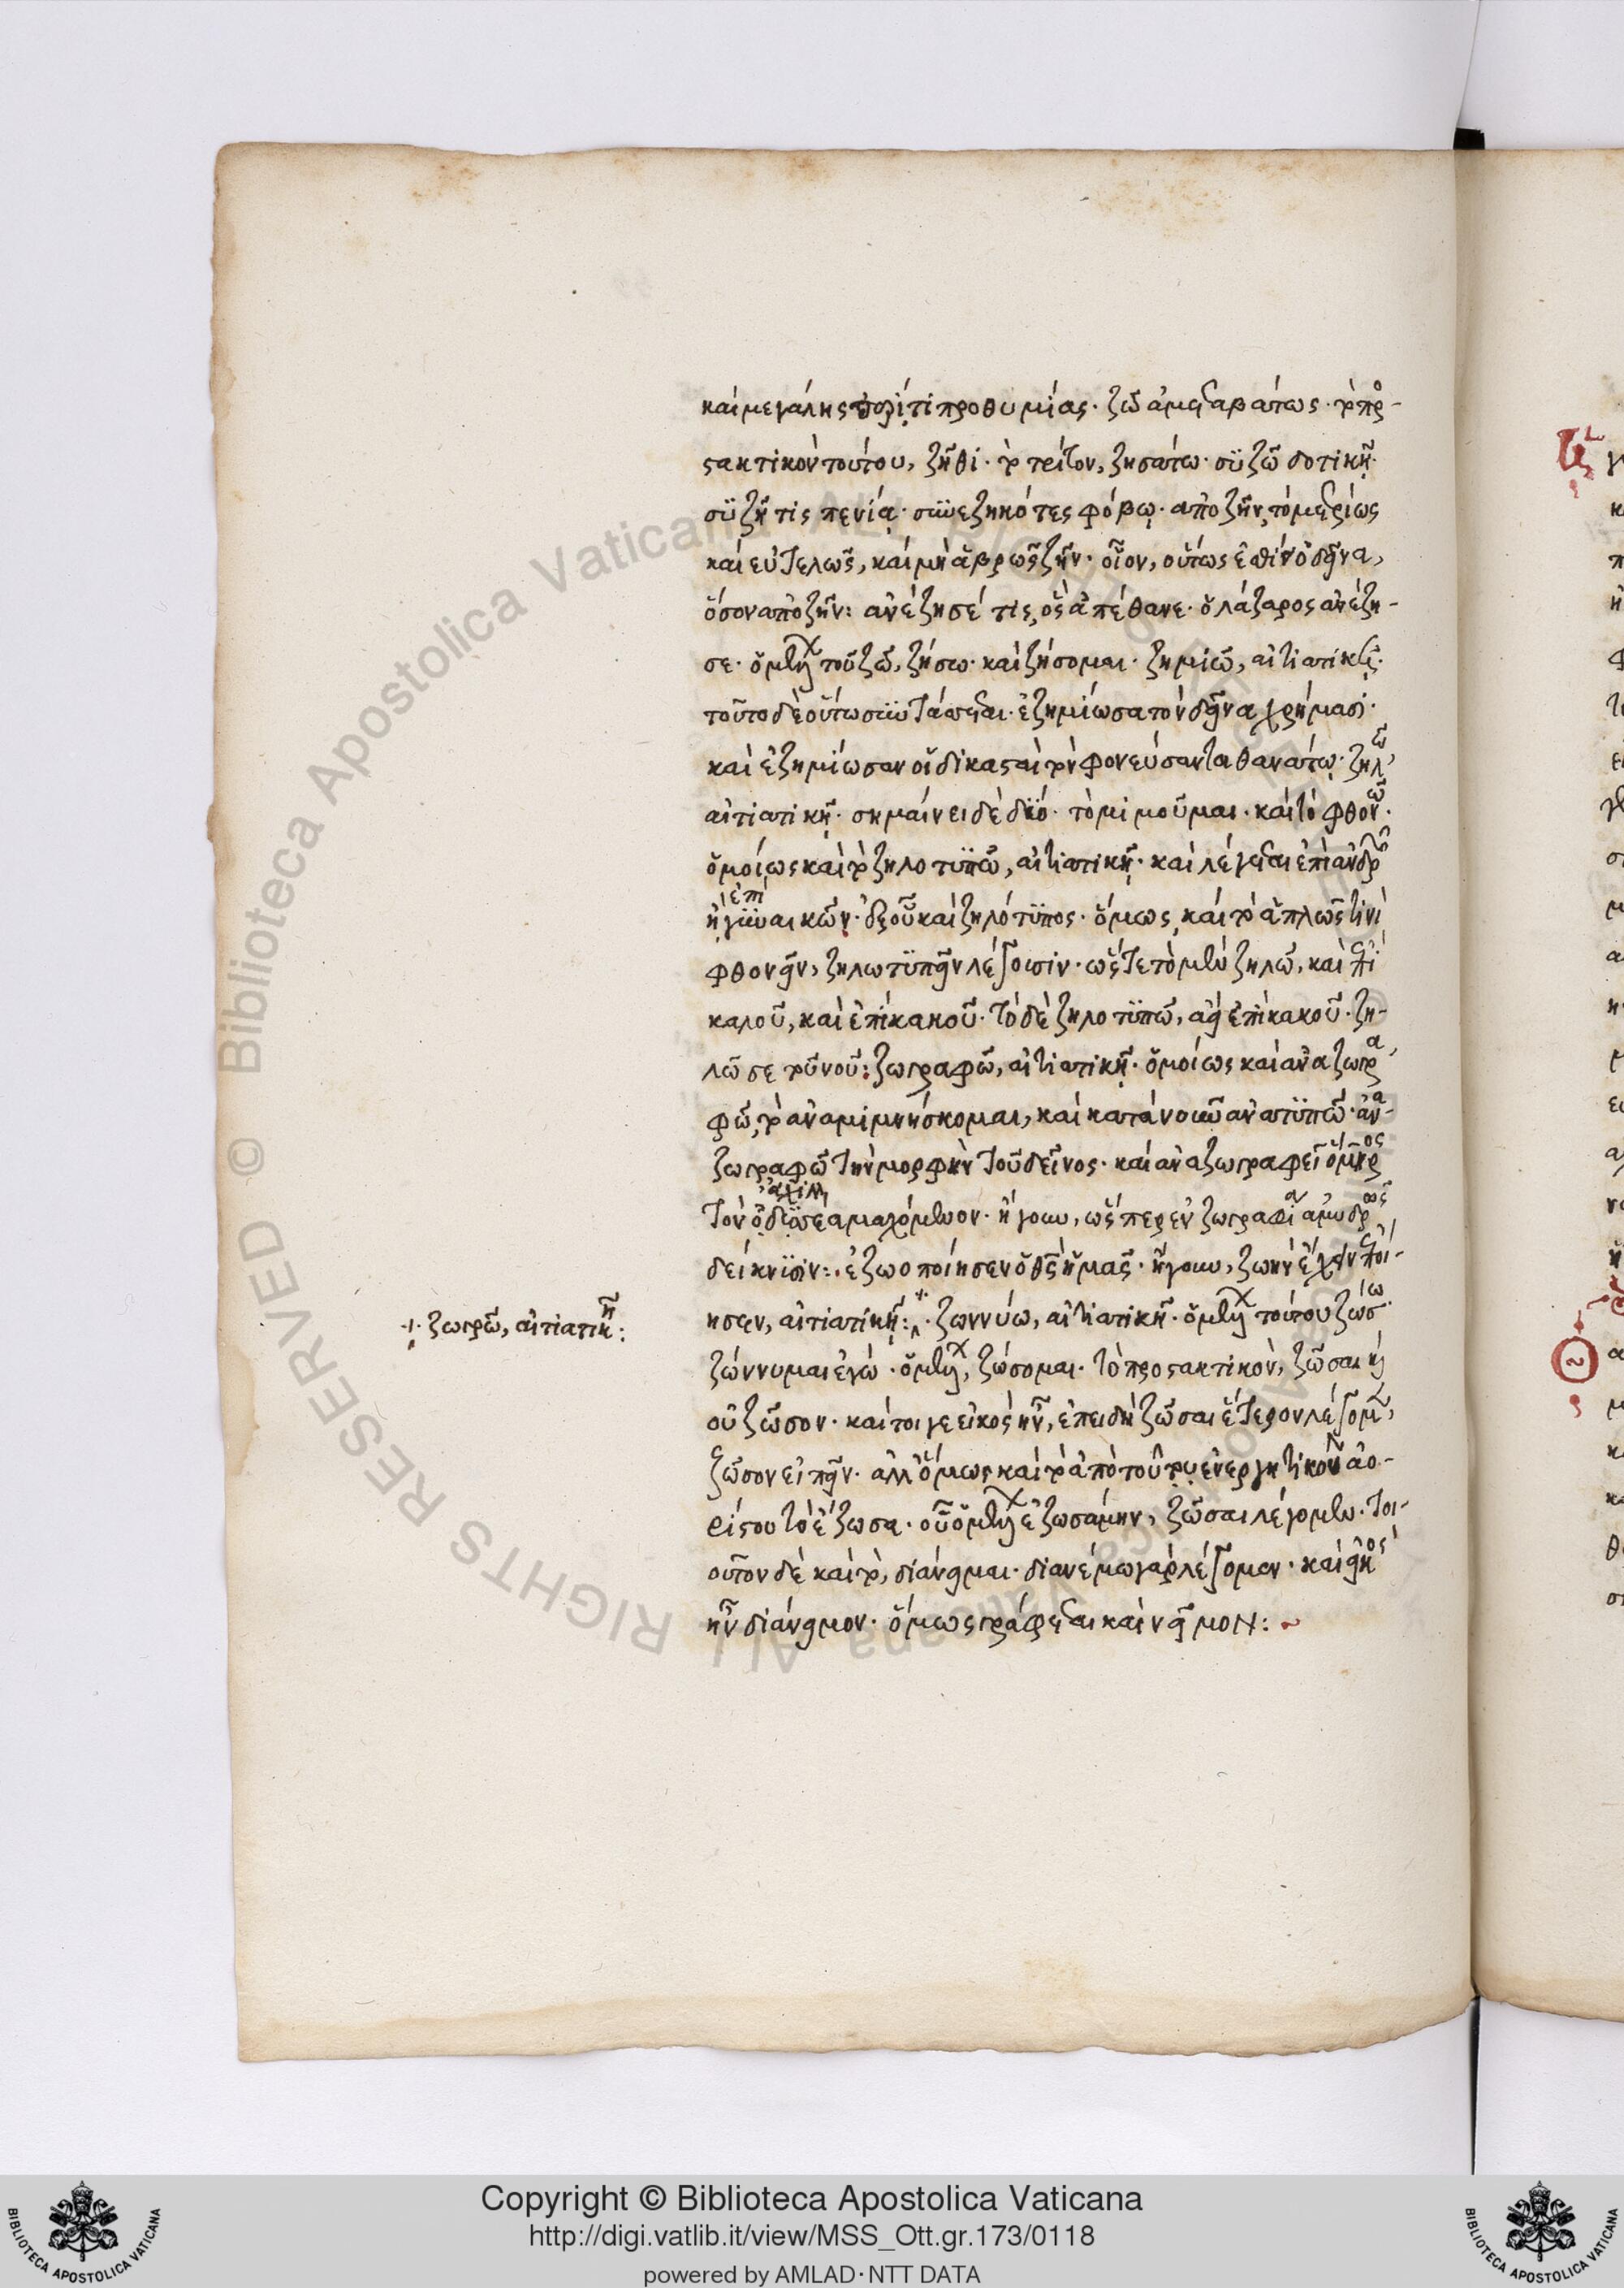 καὶ μεγάλης προθυμίας· ζῶ ἀμεταβάτως· τὸ προ-
στακτικὸν τούτου, ζῆθι· τὸ τρίτον, ζησάτω· συζῶ δοτικῇ·
συζῆ τις πενίᾳ· συνεζηκότες φόβῳ· ἀποζῆν, τὸ μετρίως
καὶ εὐτελῶς, καὶ μὴ ἁβρῶς ζῆν· οἷον, οὕτως ὁ δεῖνα,
ὅσον ἀποζῆν: ἀνέζησέ τις, ὃς ἀπέθανε· ὁ λάζαρος ἀνέζη-
σε· ὁ μέλλων τοῦ ζῶ, ζήσω· καὶ ζήσομαι· ζημιῶ, αἰτιατικῇ·
τοῦτο δὲ οὕτω συντάσσεται· ἐζημίωσα τὸν δεῖνα χρήμασι·
καὶ ἐζημίωσαν οἱ δικασταὶ τὸν φονεύσαντα θανάτῳ· ζηλῶ,
αἰτιατικῇ· σημαίνει δὲ δύο· τὸ μιμοῦμαι· καὶ τὸ φθονῶ·
ὁμοίως καὶ τὸ ζηλοτυπῶ, αἰτιατικῇ· καὶ λέγεται ἐπὶ ἀνδρῶν
ἢ ἐπὶ γυναικῶν· ἐξ οὗ καὶ ζηλότυπος· ὅμως καὶ τὸ ἁπλῶς τινὶ
φθονεῖν, ζηλωτυπεῖν λέγουσιν· ὥστε τὸ μὲν ζηλῶ, καὶ ἐπὶ
καλοῦ, καὶ ἐπὶ κακοῦ· τὸ δὲ ζηλοτυπῶ, ἀεὶ ἐπὶ κακοῦ· ζη-
λῶ σε τοῦ νοῦ: ζωγραφῶ, αἰτιατικῇ· ὁμοίως καὶ ἀναζωγρα-
φῶ, τὸ ἀναμιμνήσκομαι, καὶ κατὰ νοῦν ἀνατυπῶ· ἀνα-
ζωγραφῶ τὴν μορφὴν τοῦ δεῖνος· καὶ ἀναζωγραφεῖ ὅμηρος
τὸν ὀδυσσέα μαχόμενον· ἤγουν, ὥσπερ ἐν ζωγραφίᾳ ἀμυδρῶς
δείκνυσιν: ἐζωοποίησεν ὁ θεὸς ἡμᾶς· ἤγουν, ζωὴν ἔχειν ἐποί-
ησεν, αἰτιατικῇ: ζωννύω, αἰτιατικῇ· ὁ μέλλων τούτου ζώσω·
·/· ζωγρῶ, αἰτιατικῇ:
ζώννυμαι ἐγώ· ὁ μέλλων, ζώσομαι· τὸ προστακτικὸν, ζῶσαι καὶ
οὐ ζῶσον· καίτοιγε εἰκὸς ἦν, ἐπειδὴ ζῶσαι ἕτερον λέγομεν,
ζῶσον εἰπεῖν· ἀλλ' ὅμως καὶ τὸ ἀπὸ τοῦ ἐνεργητικοῦ ἀο-
ρίστου τὸ ἔζωσα· οὗ ὁ μέλλων ἐζωσάμην, ζῶσαι λέγομεν· τοι-
οῦτον δὲ καὶ τὸ, διάνειμαι· διανέμω γὰρ λέγομεν· καὶ εἰκὸς
ἦν διάνειμον· ὅμως γράφεται καὶ νεῖμον:
Copyright © Biblioteca Apostolica Vaticana
http://digi.vatlib.it/view/MSS_Ott.gr.173/0118
powered by AMLAD·NTT DATA